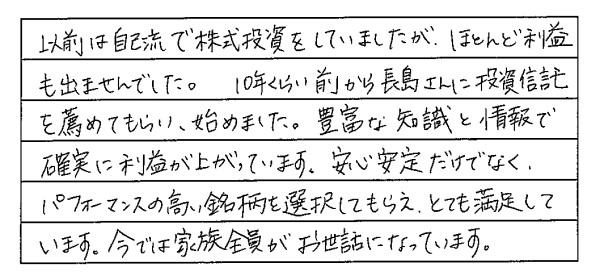 以前は自己流で株式投資をしていましたが、ほとんど利益
も出ませんでした。 10年くらい前から長島さんに投資信託
を薦めてもらい、始めました。豊富な知識と情報で
確実に利益が上がっています。安心安定だけでなく、
パフォーマンスの高い銘柄を選択してもらえ、とても満足して
います。今では家族全員がお世話になっています。